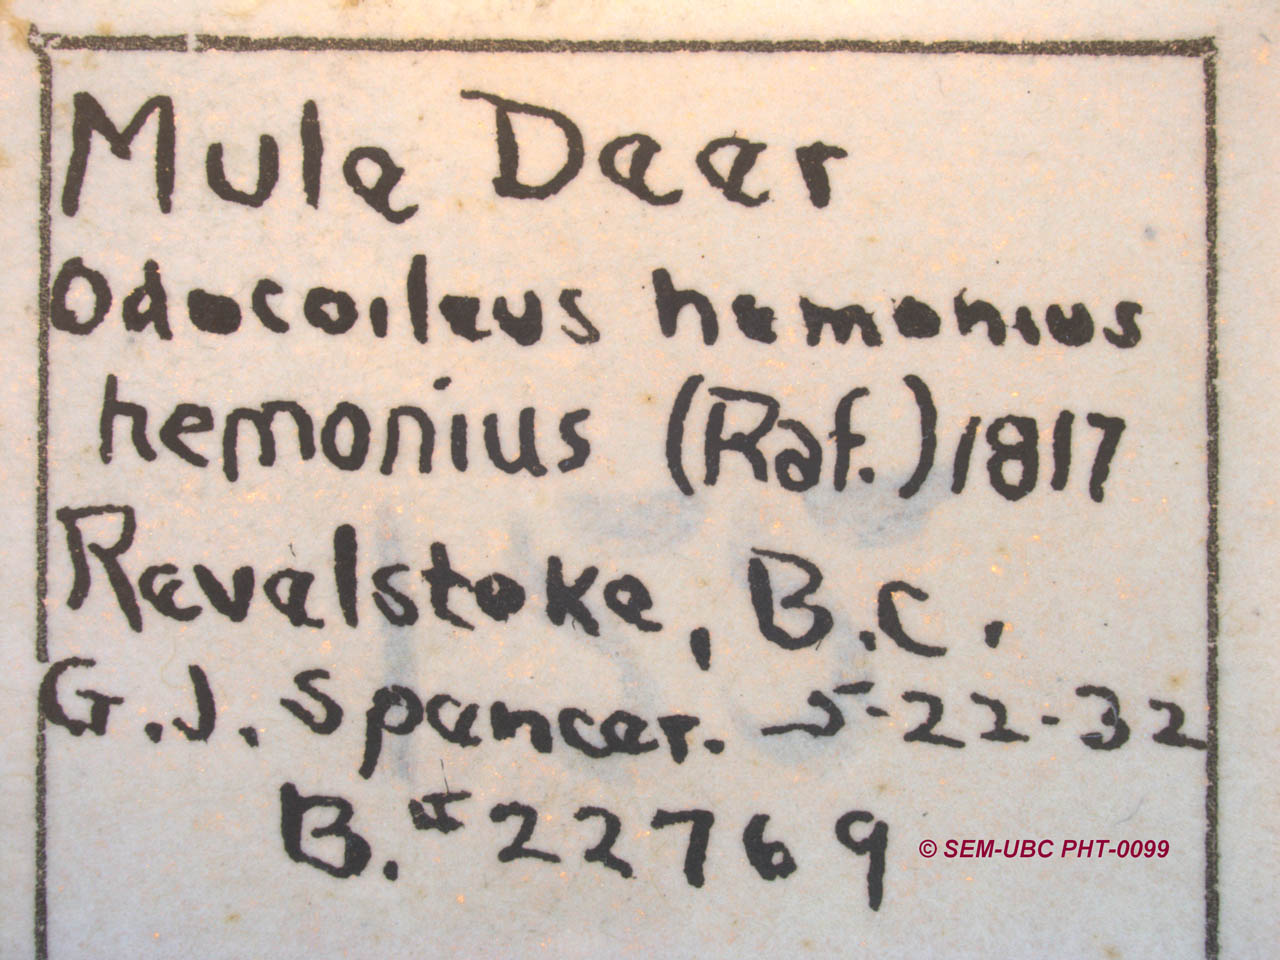 Mule Deer
Odocoileus hemonius
hemonius (Raf.) 1817
Revelstoke, B.C.
G.J. Spencer. 5-22-32
B.# 22769
© SEM-UBC PHT-0099